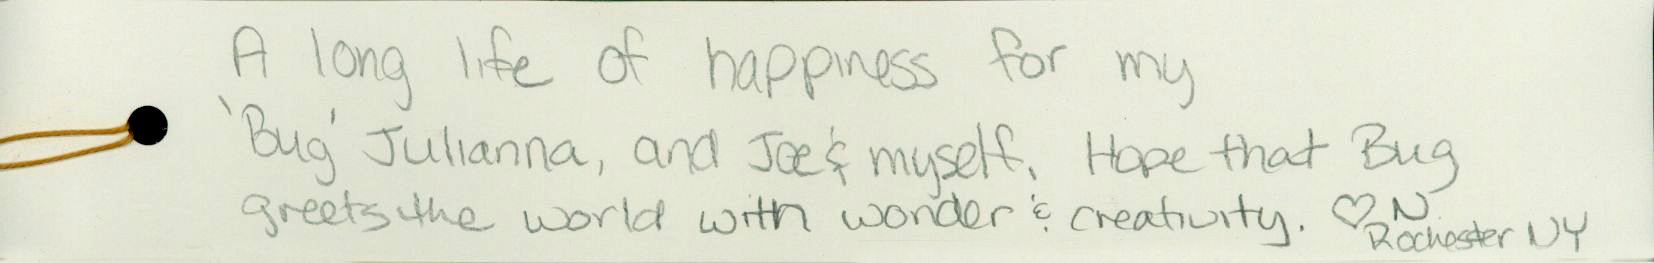 A long life of happiness for my
'Bug' Julianna, and Joe & myself. Hope that Bug
greets the world with wonder & creativity. ♡ N
Rochester NY